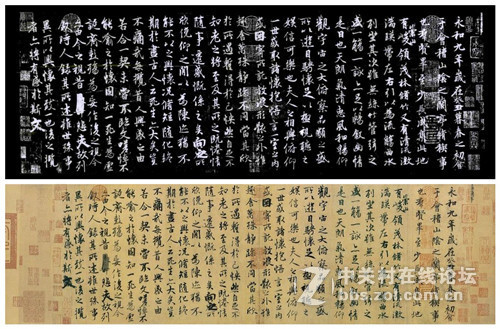 永和九年歲在癸丑暮春之初會
于會稽山陰之蘭亭脩稧事
也羣賢畢至少長咸集此地
有崇山峻領茂林脩竹又有清流激
湍暎帶左右引以為流觴曲水
列坐其次雖無絲竹管弦之
盛一觴一詠亦足以暢敘幽情
是日也天朗氣清惠風和暢仰
觀宇宙之大俯察品類之盛
所以遊目騁懷足以極視聽之
娛信可樂也夫人之相與俯仰
一世或取諸懷抱悟言一室之內
或因寄所託放浪形骸之外雖
趣舍萬殊靜躁不同當其欣
於所遇暫得於己怏然自足不
知老之將至及其所之既惓情
隨事遷感慨係之矣向之所
欣俛仰之閒以為陳跡猶不
能不以之興懷況脩短隨化終
期於盡古人云死生亦大矣豈
不痛哉每攬昔人興感之由
若合一契未嘗不臨文嗟悼不
能喻之於懷固知一死生為虛
誕齊彭殤為妄作後之視今
亦由今之視昔悲夫故列
敘時人錄其所述雖世殊事
異所以興懷其致一也後之攬
者亦將有感於斯文
永和九年歲在癸丑暮春之初會
于會稽山陰之蘭亭脩稧事
也羣賢畢至少長咸集此地
有崇山峻領茂林脩竹又有清流激
湍暎帶左右引以為流觴曲水
列坐其次雖無絲竹管弦之
盛一觴一詠亦足以暢敘幽情
是日也天朗氣清惠風和暢仰
觀宇宙之大俯察品類之盛
所以遊目騁懷足以極視聽之
娛信可樂也夫人之相與俯仰
一世或取諸懷抱悟言一室之內
或因寄所託放浪形骸之外雖
趣舍萬殊靜躁不同當其欣
於所遇暫得於己怏然自足不
知老之將至及其所之既惓情
隨事遷感慨係之矣向之所
欣俛仰之閒以為陳跡猶不
能不以之興懷況脩短隨化終
期於盡古人云死生亦大矣豈
不痛哉每攬昔人興感之由
若合一契未嘗不臨文嗟悼不
能喻之於懷固知一死生為虛
誕齊彭殤為妄作後之視今
亦由今之視昔悲夫故列
敘時人錄其所述雖世殊事
異所以興懷其致一也後之攬
者亦將有感於斯文
中关村在线论坛
bbs.zol.com.cn